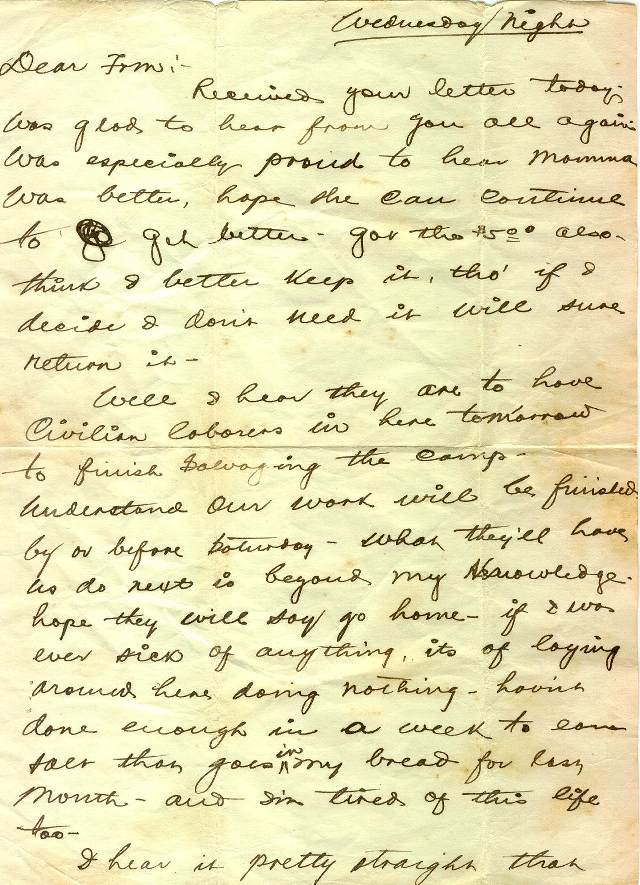 Wednesday Night
Dear Fom:-
Received your letter today.
Was glad to hear from you all again.
Was especially proud to hear Momma
was better, hope she can continue
to get better - got the $5.00 also -
think I better keep it, tho' if I
decide I don't need it will sure
return it -
Well I hear they are to have
Civilian laborers in here tomorrow
to finish salvaging the camp -
Understand our work will be finished
by or before Saturday - what they'll have
us do next is beyond my knowledge -
hope they will say go home - if I was
ever sick of anything, its of laying
around here doing nothing - hav'nt
done enough in a week to earn
salt that goes in my bread for last
month - and I'm tired of this life
too -
I hear it pretty straight that